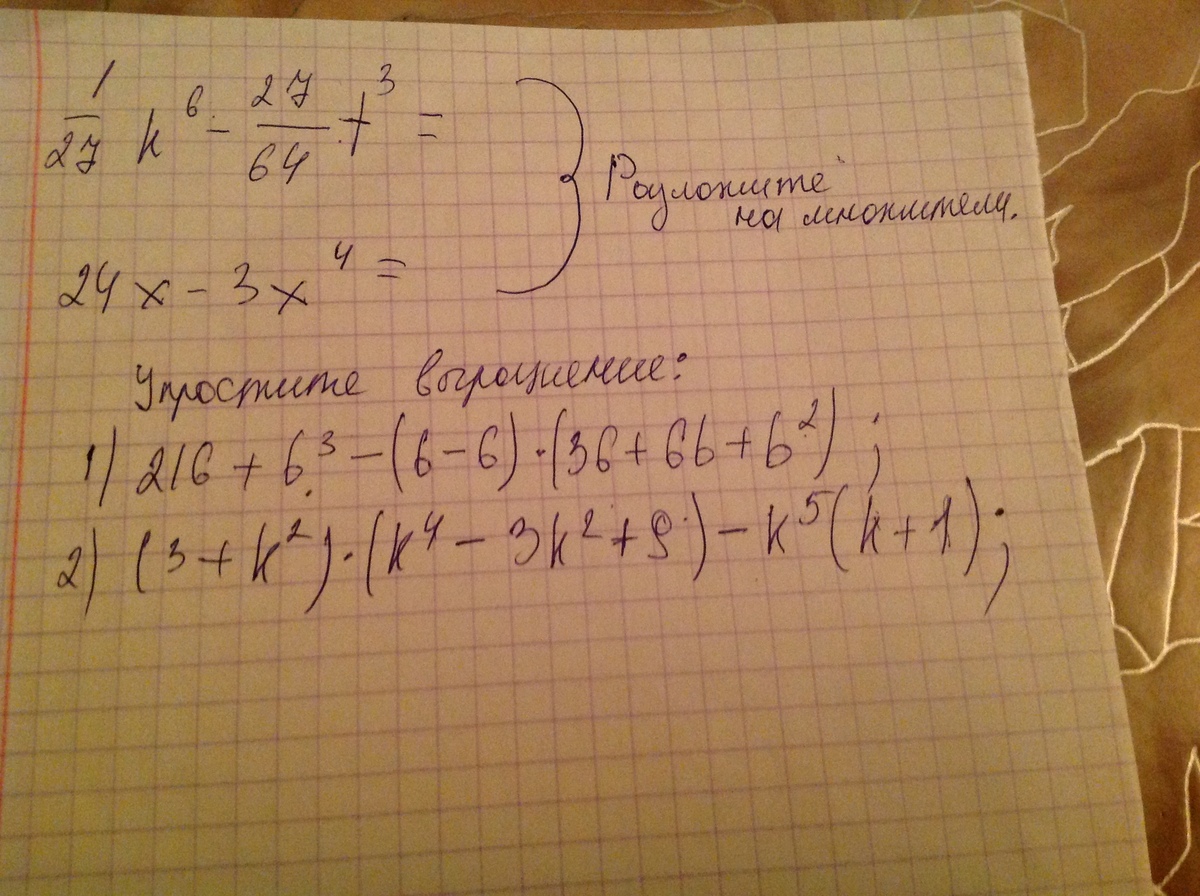 1/27 k⁶ - 27/64 t³ =
24x - 3x⁴ =
Разложите
на множители.
Упростите выражение:
1) 216 + b³ - (6 - b) · (36 + 6b + b²) ;
2) (3 + k²) · (k⁴ - 3k² + 9) - k⁵ (k + 1) ;